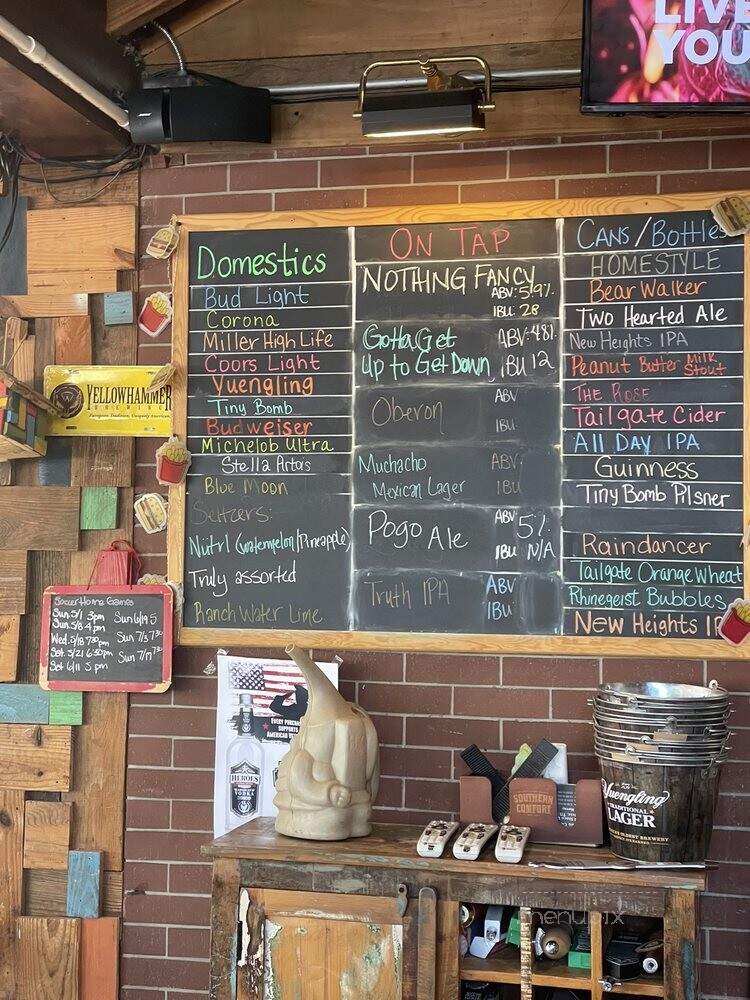 LIVE
YOU
DOMESTICS
Bud Light
Corona
Miller High Life
Coors Light
Yuengling
Tiny Bomb
Budweiser
Michelob Ultra
Stella Artois
Blue Moon
Seltzers:
Nütrl (watermelon/Pineapple)
Truly assorted
Ranch Water Lime
ON TAP
NOTHING FANCY
ABV: 5.9%
IBU: 28
Gotta Get ABV: 4.8%
Up to Get Down IBU 12
Oberon ABV
IBU
Muchacho ABV
Mexican Lager IBU
Pogo Ale ABV 5%
IBU N/A
Truth IPA ABV
IBU
CANS/Bottles
HOMESTYLE
Bear Walker
Two Hearted Ale
New Heights IPA
Peanut Butter Milk Stout
THE ROSE
Tailgate Cider
All Day IPA
Guinness
Tiny Bomb Pilsner
Raindancer
Tailgate Orange Wheat
Rhinegeist Bubbles
New Heights IP
YELLOWHAMMER
BREWING
Soccer Home Games
Sun. 5/1 3pm
Sun. 5/8 4pm
Wed. 5/18 7:30pm
Sat. 5/21 6:30pm
Sat 6/11 5pm
Sun 6/19 5
Sun 7/3 7:30
Sun 7/17 7:30
EVERY PURCHASE
SUPPORTS
HEROES
VODKA
SOUTHERN
COMFORT
Yuengling
TRADITIONAL
LAGER
OLDEST BREWERY
menupix